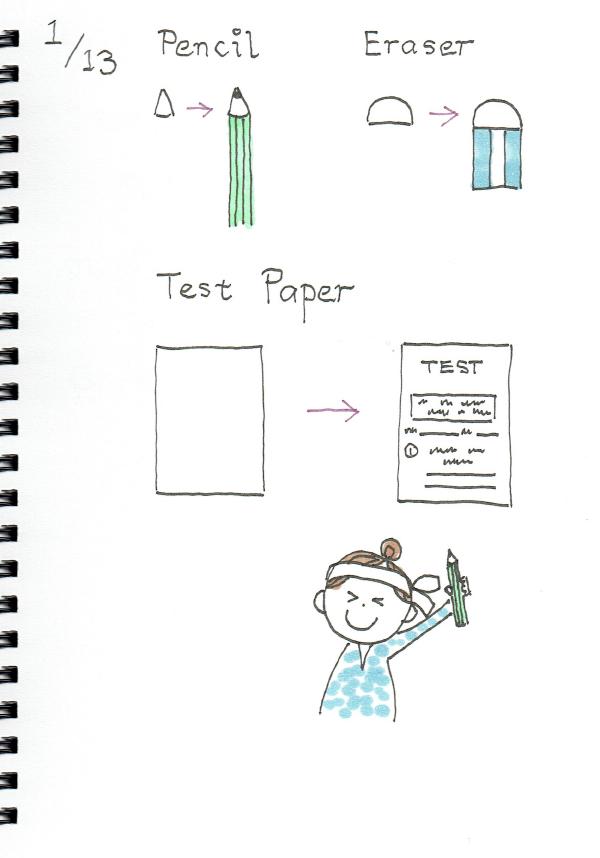 1/13
Pencil
Eraser
Test Paper
TEST
1